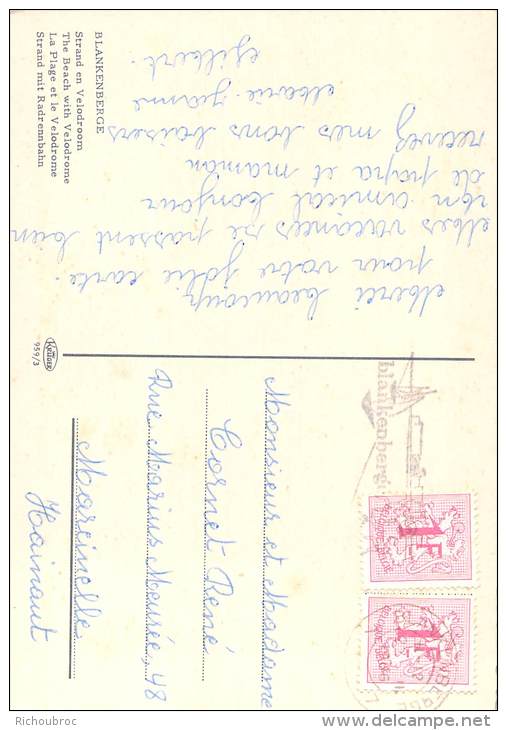 BLANKENBERGE
Strand en Velodroom
The Beach with Velodrome
La Plage et le Velodrome
Strand mit Radrennbahn
Merci beaucoup
pour votre jolie carte.
Mes vacances se passent bien
un amical bonjour
de papa et maman
recevez mes bons baisers
Marie-Jeanne
Gilbert.
KRÜGER
959/3
Monsieur et Madame
Cornet René
Rue Marius Meurée, 48
Marcinelle
Hainaut
blankenberge
1F
1F
© Richoubroc
http://www.delcampe.net